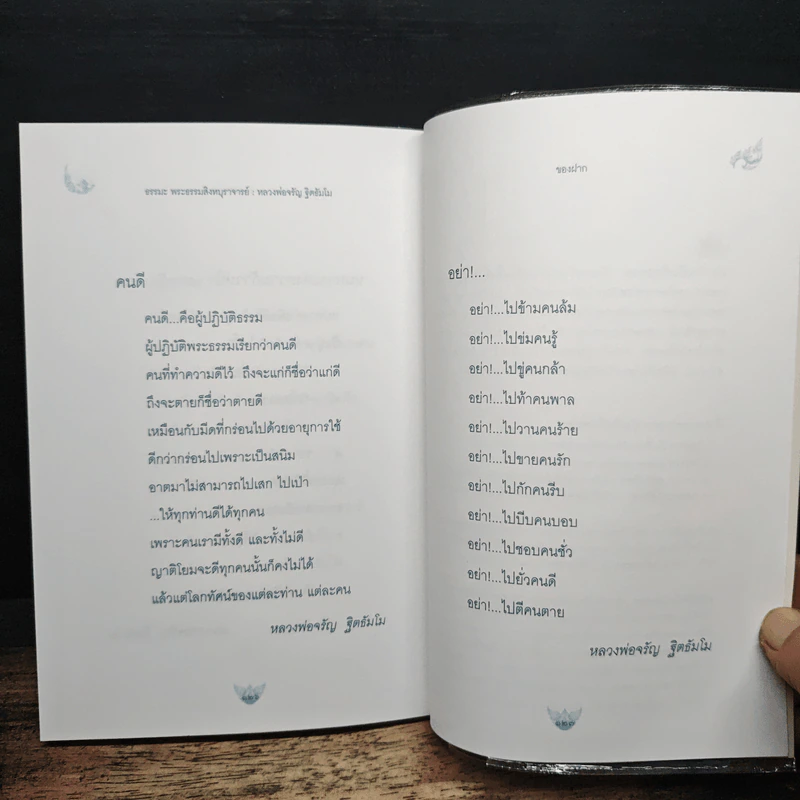 ธรรมะ พระธรรมสิงหบุราจารย์ : หลวงพ่อจรัญ ฐิตธัมโม
คนดี
คนดี...คือผู้ปฏิบัติธรรม
ผู้ปฏิบัติพระธรรมเรียกว่าคนดี
คนที่ทำความดีไว้ ถึงจะแก่ก็ชื่อว่าแก่ดี
ถึงจะตายก็ชื่อว่าตายดี
เหมือนกับมีดที่กร่อนไปด้วยอายุการใช้
ดีกว่ากร่อนไปเพราะเป็นสนิม
อาตมาไม่สามารถไปเสก ไปเป่า
...ให้ทุกท่านดีได้ทุกคน
เพราะคนเรามีทั้งดี และทั้งไม่ดี
ญาติโยมจะดีทุกคนนั้นก็คงไม่ได้
แล้วแต่โลกทัศน์ของแต่ละท่าน แต่ละคน
หลวงพ่อจรัญ ฐิตธัมโม
๑๒๖
ของฝาก
อย่า!...
อย่า!...ไปข้ามคนล้ม
อย่า!...ไปข่มคนรู้
อย่า!...ไปขู่คนกล้า
อย่า!...ไปท้าคนพาล
อย่า!...ไปวานคนร้าย
อย่า!...ไปขายคนรัก
อย่า!...ไปกักคนรีบ
อย่า!...ไปบีบคนบอบ
อย่า!...ไปชอบคนชั่ว
อย่า!...ไปยั่วคนดี
อย่า!...ไปตีคนตาย
หลวงพ่อจรัญ ฐิตธัมโม
๑๒๗